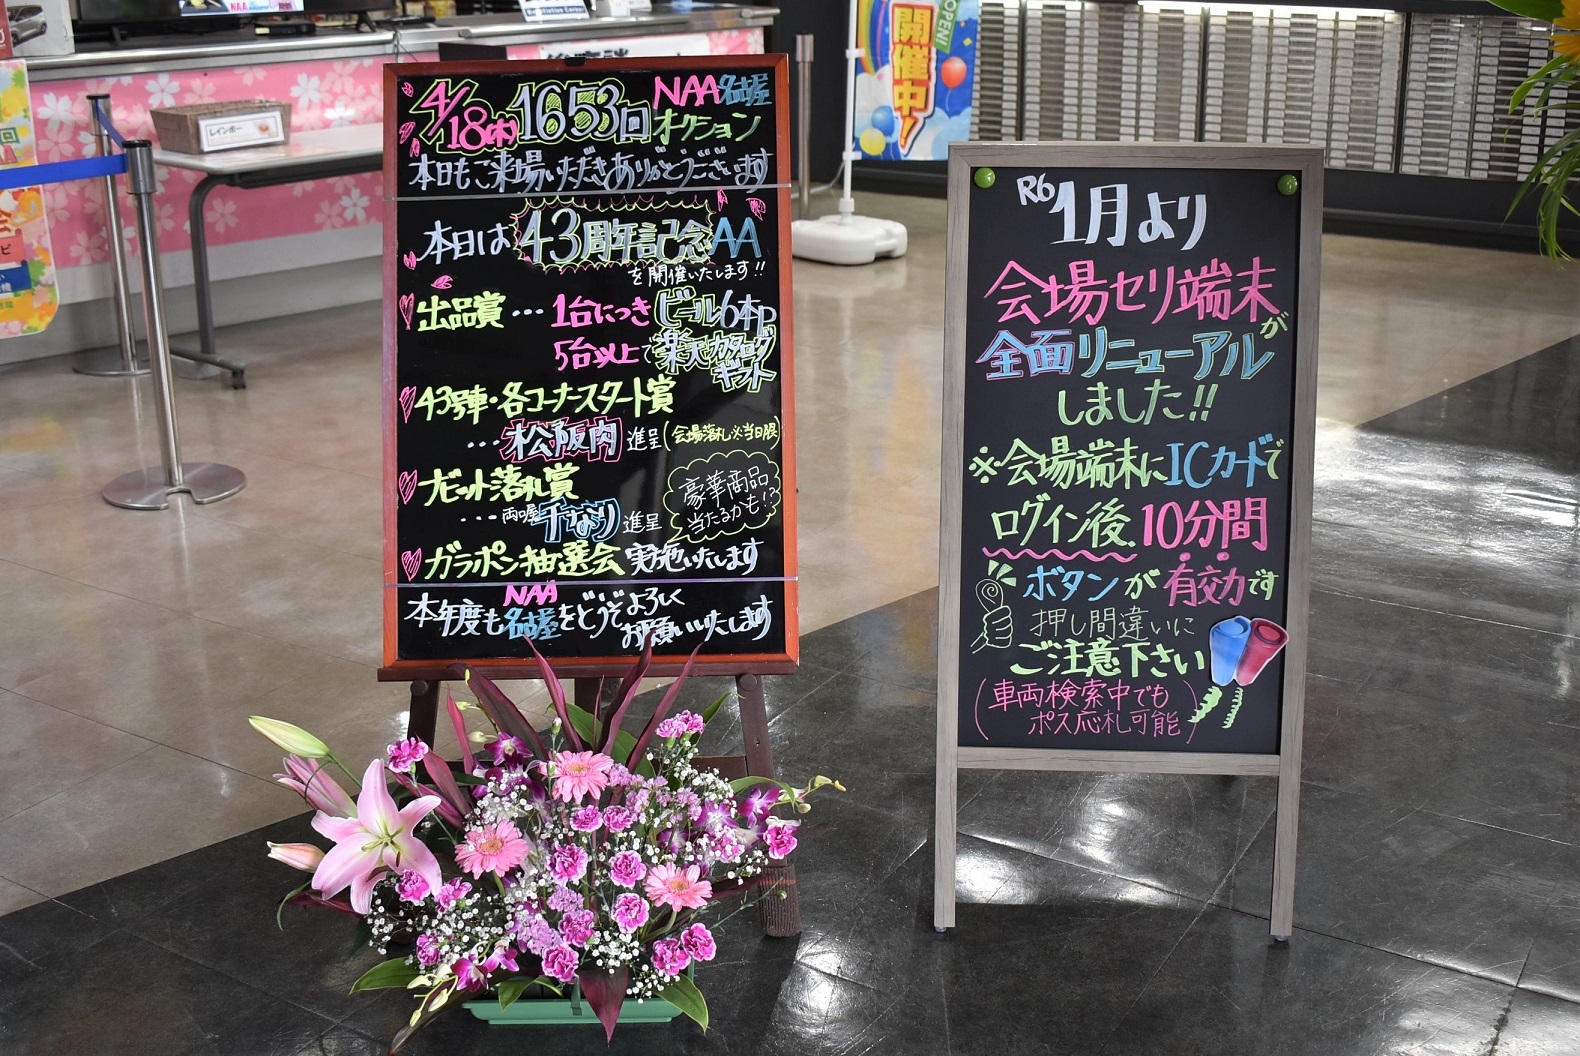 4/18(木) 1653回 NAA名古屋オークション
本日もご来場いただきありがとうございます
本日は43周年記念AA
を開催いたします!!
出品賞…1台につきビール6本P
5台以上で楽天カタログギフト
43号車・各コーナースタート賞
…松阪肉進呈(会場落札※当日限)
ナビット落札賞
…両口屋千なり進呈
豪華商品
当たるかも!?
ガラポン抽選会実施いたします
本年度もNAA名古屋をどうぞよろしく
お願いいたします
R6 1月より
会場セリ端末が
全面リニューアル
しました!!
※会場端末にICカードで
ログイン後、10分間
ボタンが有効です
押し間違いに
ご注意下さい
(車両検索中でも
ポス応札可能)
開催中!
OPEN!
レインボー
NAA